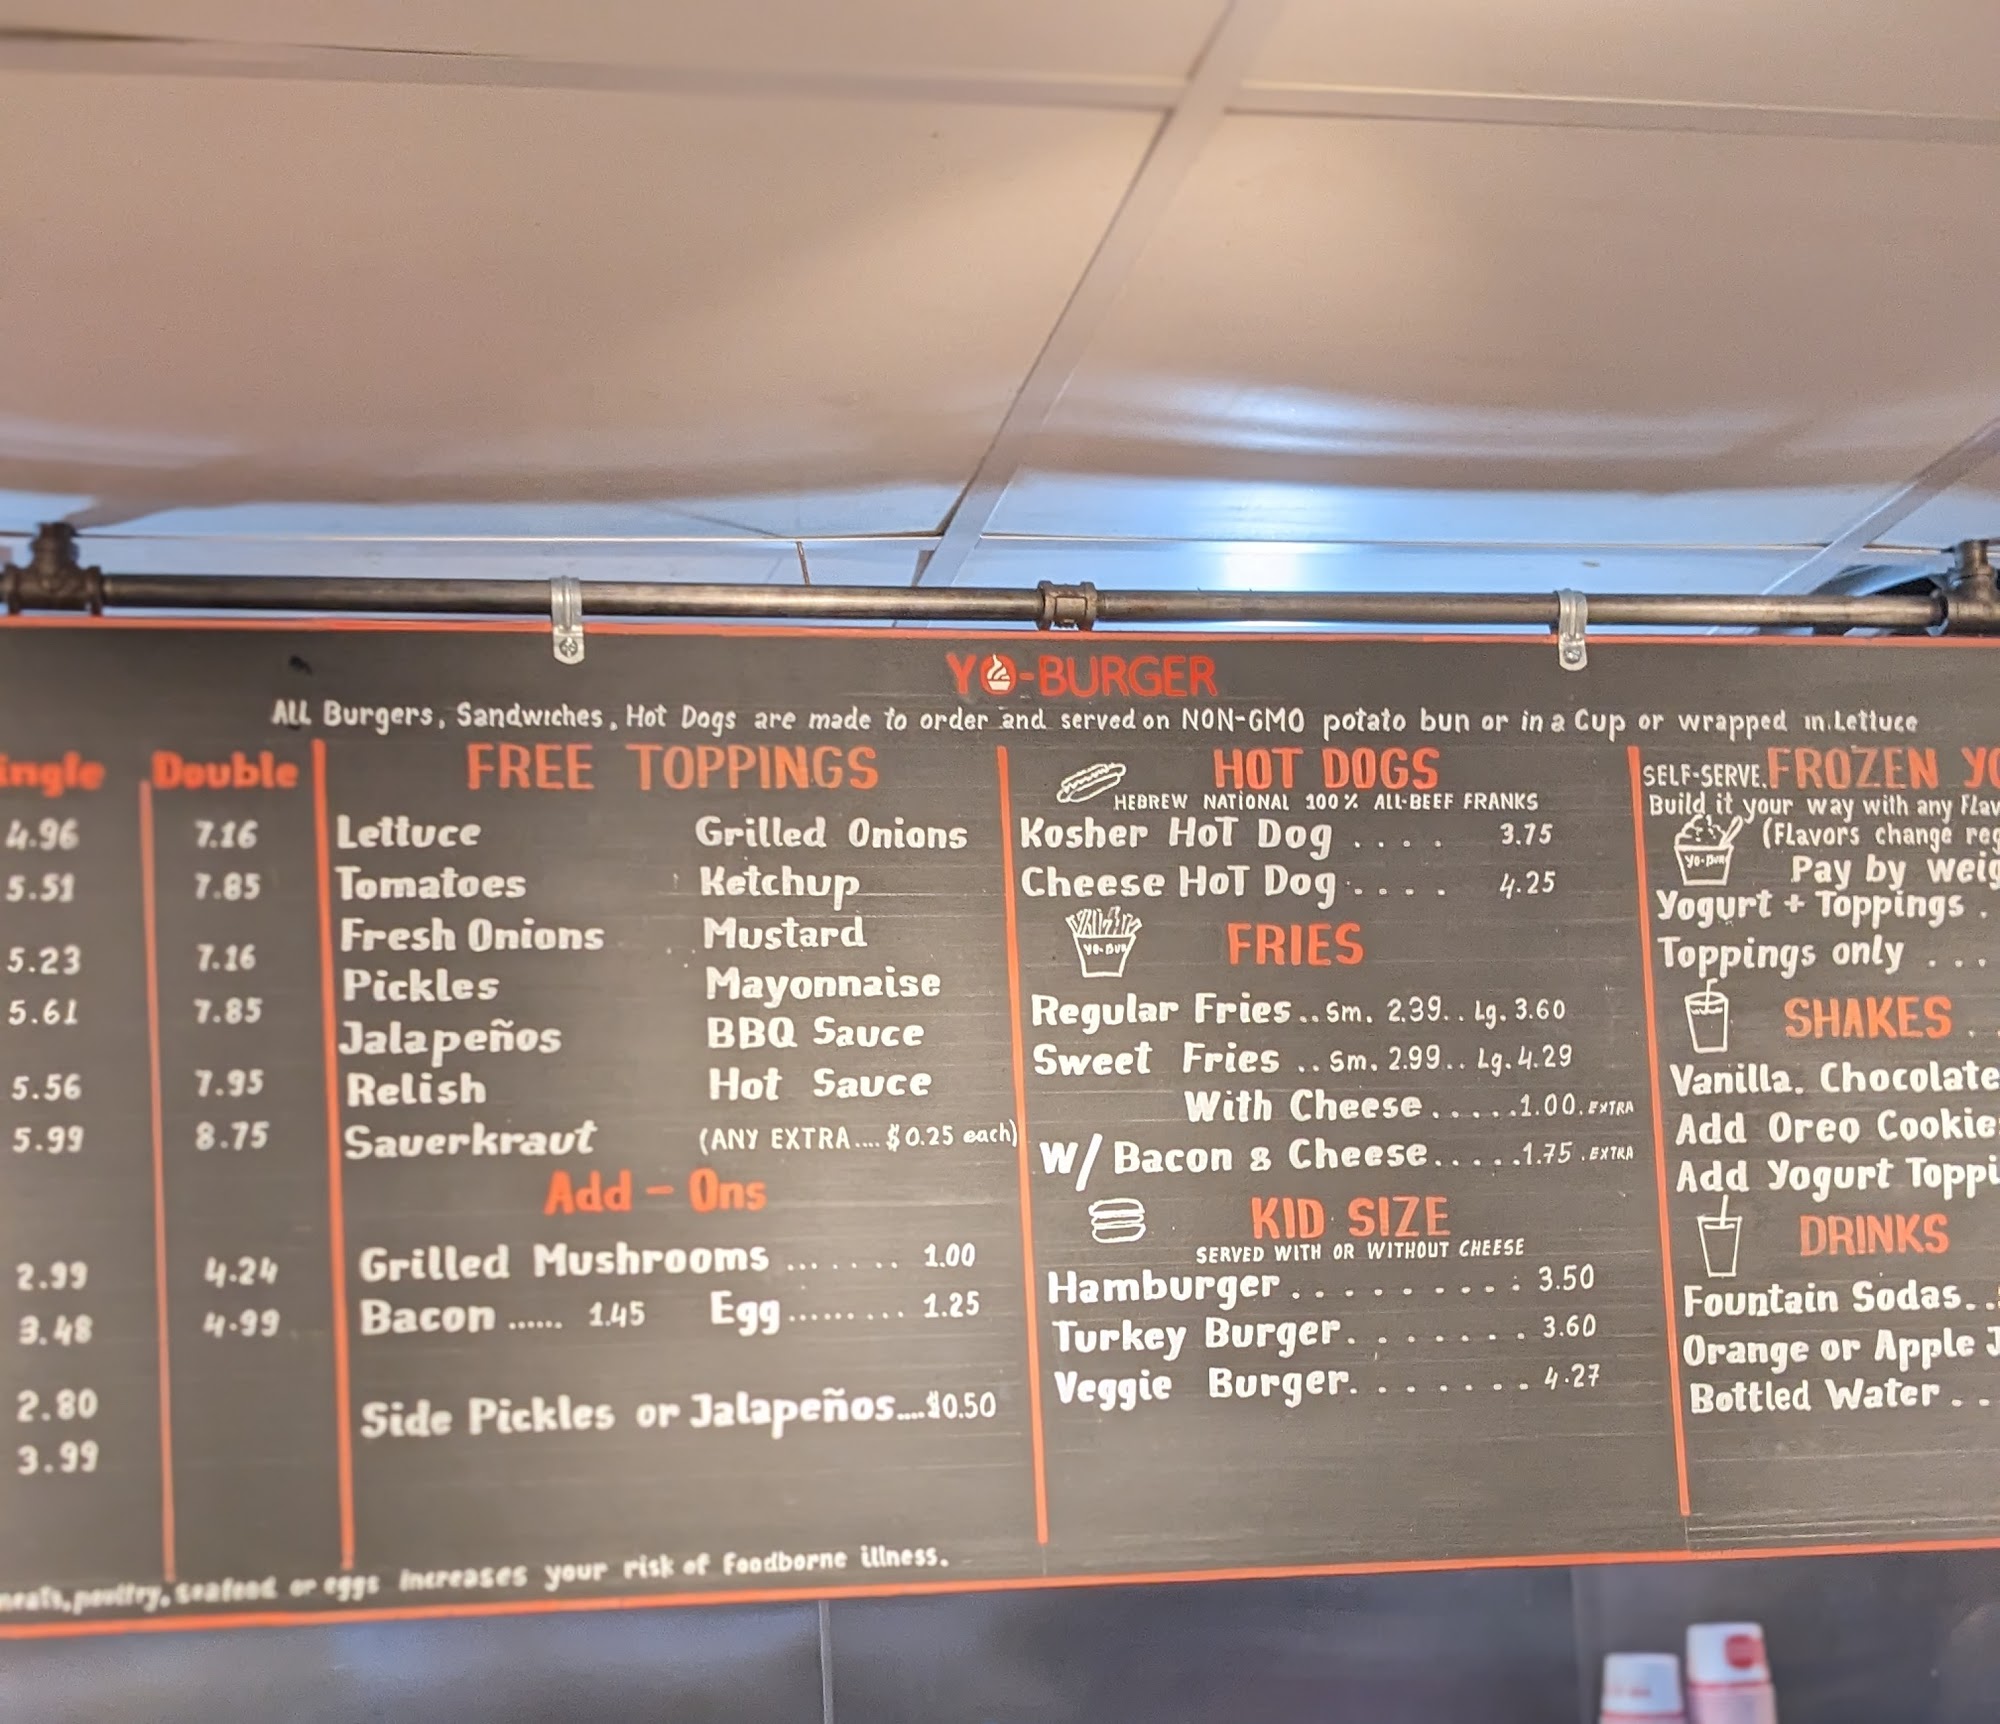 YO-BURGER
ALL Burgers, Sandwiches, Hot Dogs are made to order and served on NON-GMO potato bun or in a Cup or wrapped in Lettuce
ingle Double
4.96 7.16
5.51 7.85
5.23 7.16
5.61 7.85
5.56 7.95
5.99 8.75
2.99 4.24
3.48 4.99
2.80
3.99
FREE TOPPINGS
Lettuce Grilled Onions
Tomatoes Ketchup
Fresh Onions Mustard
Pickles Mayonnaise
Jalapeños BBQ Sauce
Relish Hot Sauce
Sauerkraut (ANY EXTRA.... $0.25 each)
Add - Ons
Grilled Mushrooms ....... 1.00
Bacon ...... 1.45 Egg......... 1.25
Side Pickles or Jalapeños....$0.50
HOT DOGS
HEBREW NATIONAL 100% ALL-BEEF FRANKS
Kosher Hot Dog .... 3.75
Cheese Hot Dog .... 4.25
YO-BUR
FRIES
Regular Fries..Sm. 2.39..Lg. 3.60
Sweet Fries ..Sm. 2.99..Lg. 4.29
With Cheese.....1.00.EXTRA
W/ Bacon & Cheese.....1.75.EXTRA
KID SIZE
SERVED WITH OR WITHOUT CHEESE
Hamburger......... 3.50
Turkey Burger........ 3.60
Veggie Burger........ 4.27
SELF-SERVE. FROZEN YO
Build it your way with any Flav
(Flavors change reg
YO-BUR
Pay by weig
Yogurt + Toppings .
Toppings only ...
SHAKES ..
Vanilla. Chocolate
Add Oreo Cookie
Add Yogurt Toppi
DRINKS
Fountain Sodas..
Orange or Apple J
Bottled Water ..
meats, poultry, seafood or eggs increases your risk of foodborne illness.